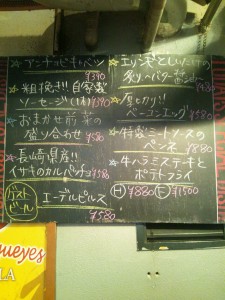 アンチョビキャベツ
¥390
粗挽き!! 自家製
ソーセージ(1本) ¥390
おまかせ前菜の
盛り合わせ ¥580
長崎県産!!
イサキのカルパッチョ ¥580
ゲスト
ビール
エーデルピルス
¥580
エリンギとしいたけの
バター ¥480
厚切り
ベーコンエッグ ¥580
特製ミートソースの
ペンネ ¥880
牛ハラミステーキと
ポテトフライ
H ¥880 F ¥1500
queyes
LA